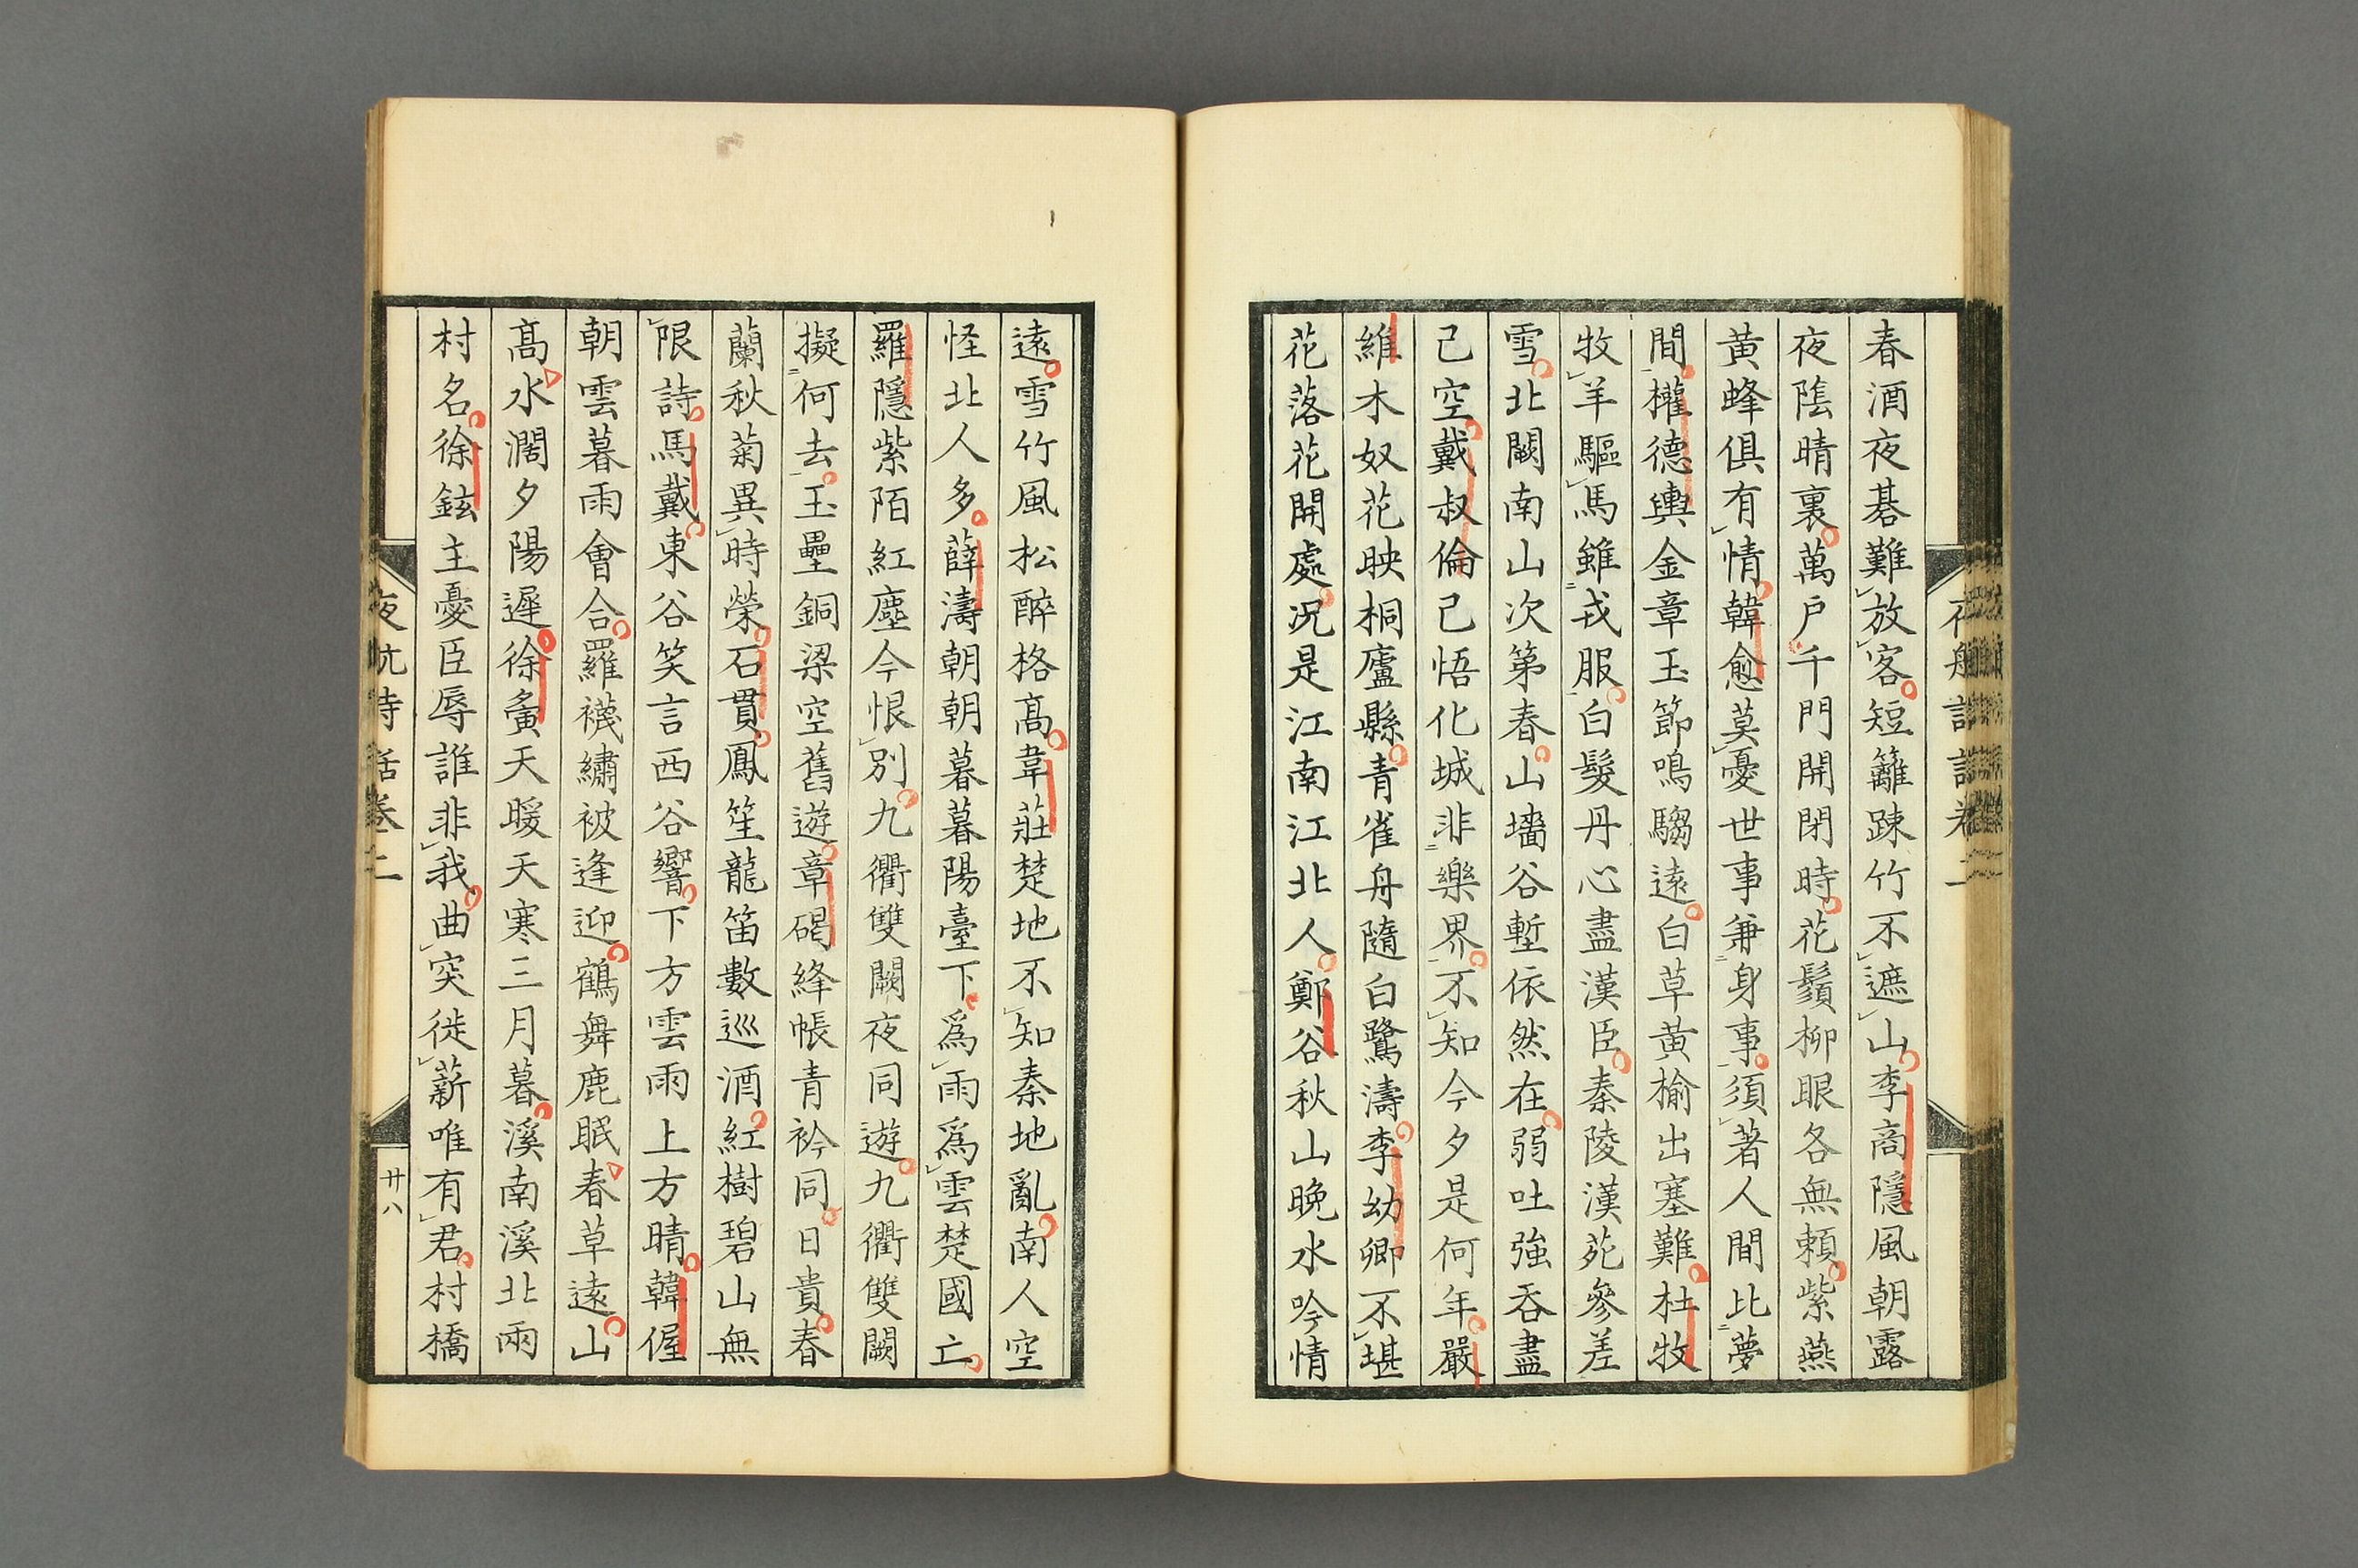 春酒夜碁難放客短籬踈竹不遮山李商隱風朝露
夜陰晴裏萬户千門開閉時花鬚柳眼各無賴紫燕
黃蜂俱有情韓愈莫憂世事兼身事須著人間比夢
間權德輿金章玉節鳴騶遠白草黃榆出塞難杜牧
牧羊驅馬雖戎服白髮丹心盡漢臣秦陵漢苑參差
雪北闕南山次第春山墻谷塹依然在弱吐強吞盡
己空戴叔倫已悟化城非樂界不知今夕是何年嚴
維木奴花映桐廬縣青雀舟隨白鷺濤李幼卿不堪
花落花開處況是江南江北人鄭谷秋山晚水吟情
遠雪竹風松醉格高韋莊楚地不知秦地亂南人空
怪北人多薛濤朝朝暮暮陽臺下爲雨爲雲楚國亡
羅隱紫陌紅塵今恨別九衢雙闕夜同遊九衢雙闕
擬何去玉壘銅梁空舊遊章碣絳帳青衿同日貴春
蘭秋菊異時榮石貫鳳笙龍笛數巡酒紅樹碧山無
限詩馬戴東谷笑言西谷響下方雲雨上方晴韓偓
朝雲暮雨會合羅襪繡被逢迎鶴舞鹿眠春草遠山
高水濶夕陽遲徐夤天暖天寒三月暮溪南溪北兩
村名徐鉉主憂臣辱誰非我曲突徙薪唯有君村橋
夜航詩話卷二
廿八